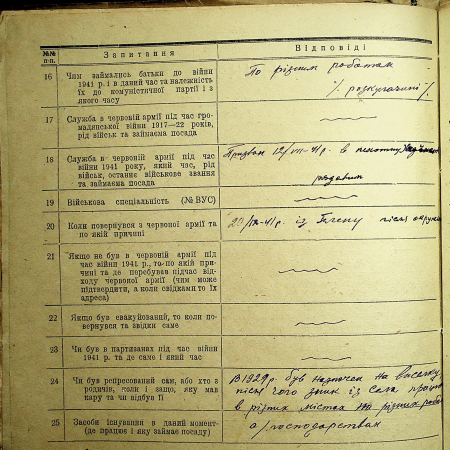 №№ п-п.
Запитання
Відповіді
16 Чим займались батьки до війни
1941 р. і в даний час та належність
їх до комуністичної партії і з
якого часу
По різним роботам
/. розкуркулині /.
17 Служба в червоній армії під час гро-
мадянської війни 1917—22 років,
рід військ та займаєма посада
18 Служба в червоній армії під час
війни 1941 року, який час, рід
військ, останнє військове звання
та займаєма посада
Призван 12/VII-41р. в пехотну
рядовим
19 Військова спеціальність (№ ВУС)
20 Коли повернувся з червоної армії та
по якій причині
/IX-41р. із після
21 Якщо не був в червоній армії під
час війни 1941 р., то по якій при-
чині та де перебував підчас від-
ходу червоної армії (чим може
підтвердити, а коли свідками то їх
адреса)
22 Якщо був евакуйований, то коли по-
вернувся та звідки саме
23 Чи був в партизанах під час війни
1941 р. та де саме і який час
24 Чи був репресований сам, або хто з
родичів, коли і защо, яку мав
кару та чи відбув її
В 1929р. був назначен на висилку
після чого зник із села
в різних містах по різних
25 Засоби існування в даний момент-
(де працює і яку займає посаду)
господарствах